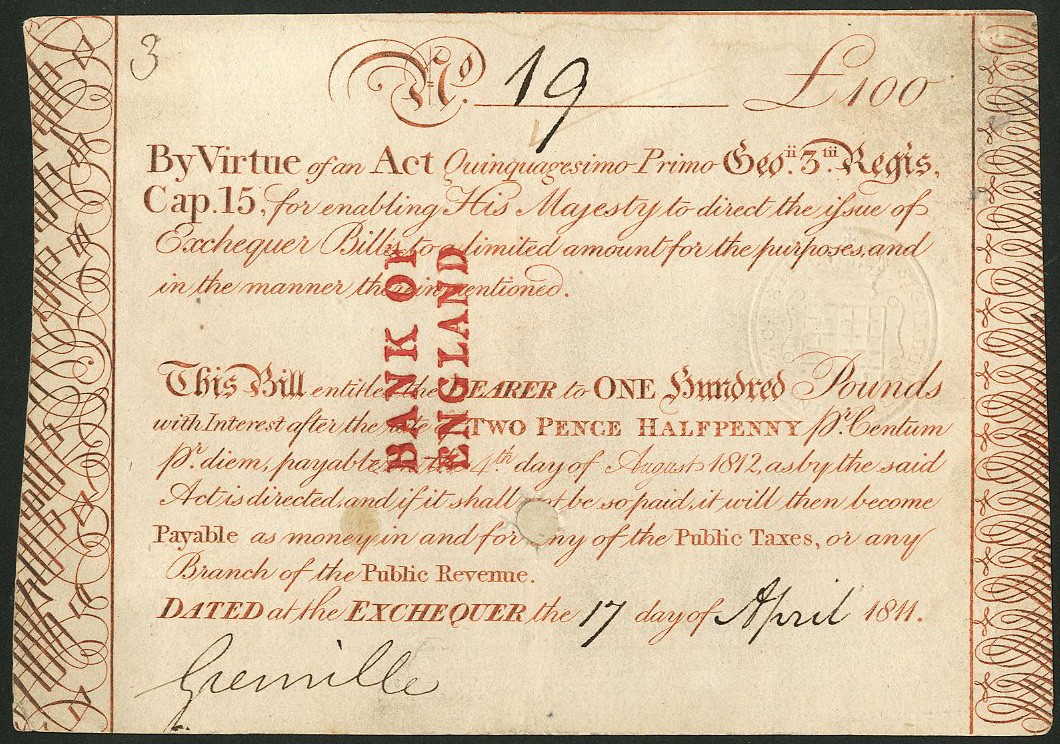 3
No. 19 £100
By Virtue of an Act Quinquagesimo Primo Geo.ii 3.tii Regis,
Cap. 15, for enabling His Majesty to direct the issue of
Exchequer Bills to a limited amount for the purposes, and
in the manner therein mentioned.
This Bill entitles the BEARER to ONE Hundred Pounds
with Interest after the rate of TWO PENCE HALFPENNY Pr. Centum
Pr. diem, payable the 4th day of August 1812, as by the said
Act is directed, and if it shall not be so paid, it will then become
Payable as money in and for any of the Public Taxes, or any
Branch of the Public Revenue.
DATED at the EXCHEQUER the 17 day of April 1811.
Grenville
BANK OF
ENGLAND